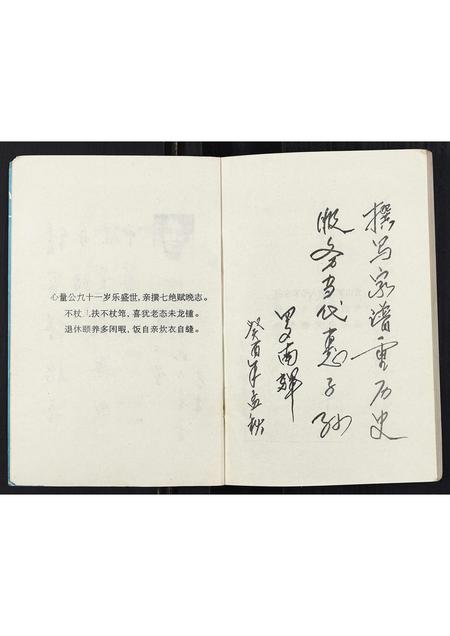 心量公九十一岁乐盛世，亲撰七绝赋晚志。
不杖 扶不杖筇，喜犹老态未龙锺。
退休颐养多闲暇，饭自亲炊衣自缝。
撰写家谱重历史
服务当代惠子孙
罗南辉
癸酉年孟秋